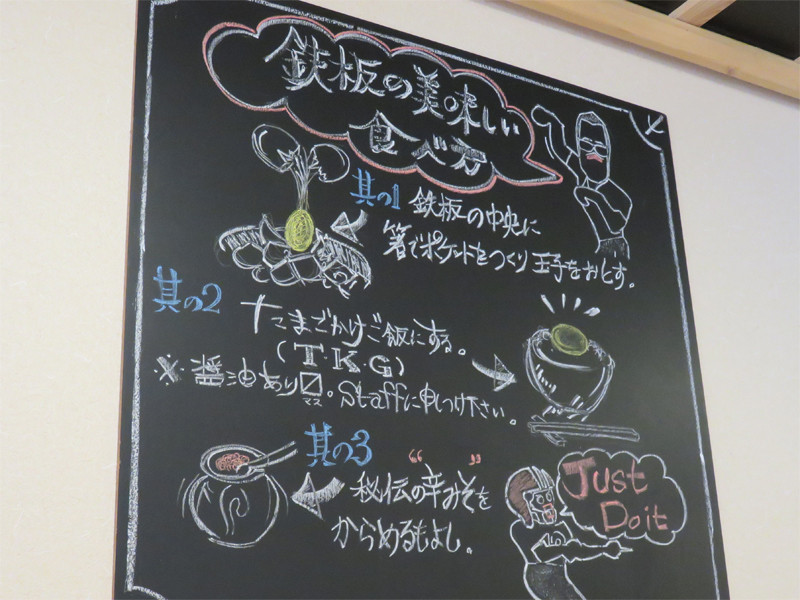 鉄板の美味しい
食べ方
其の1 鉄板の中央に
箸でポケットをつくり玉子をおとす。
其の2 たまごかけご飯にする。
(T.K.G)
※醤油あり〼。Staffに申しつけ下さい。
マス
其の3 “ ”
秘伝の辛みそを
からめるもよし。
Just
Do it